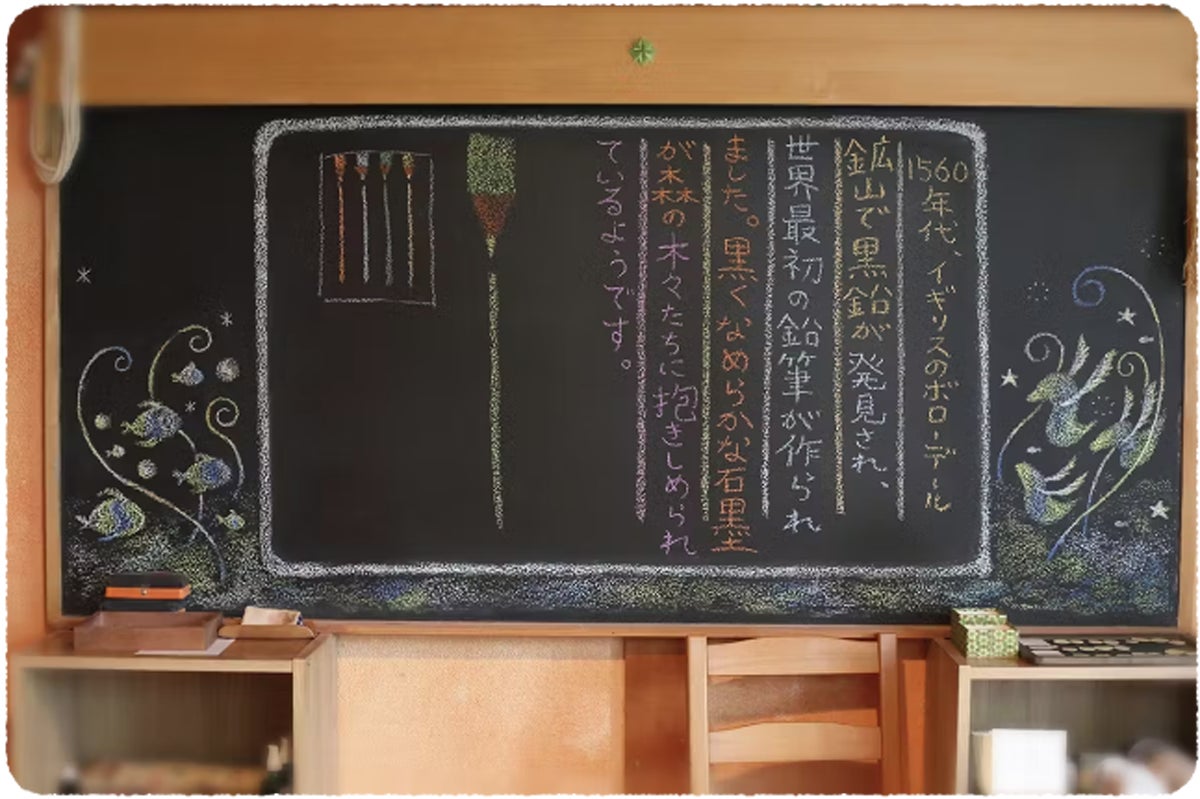 1560年代、イギリスのボローデール
鉱山で黒鉛が発見され、
世界最初の鉛筆が作られ
ました。黒くなめらかな石墨
が森の木々たちに抱きしめられ
ているようです。